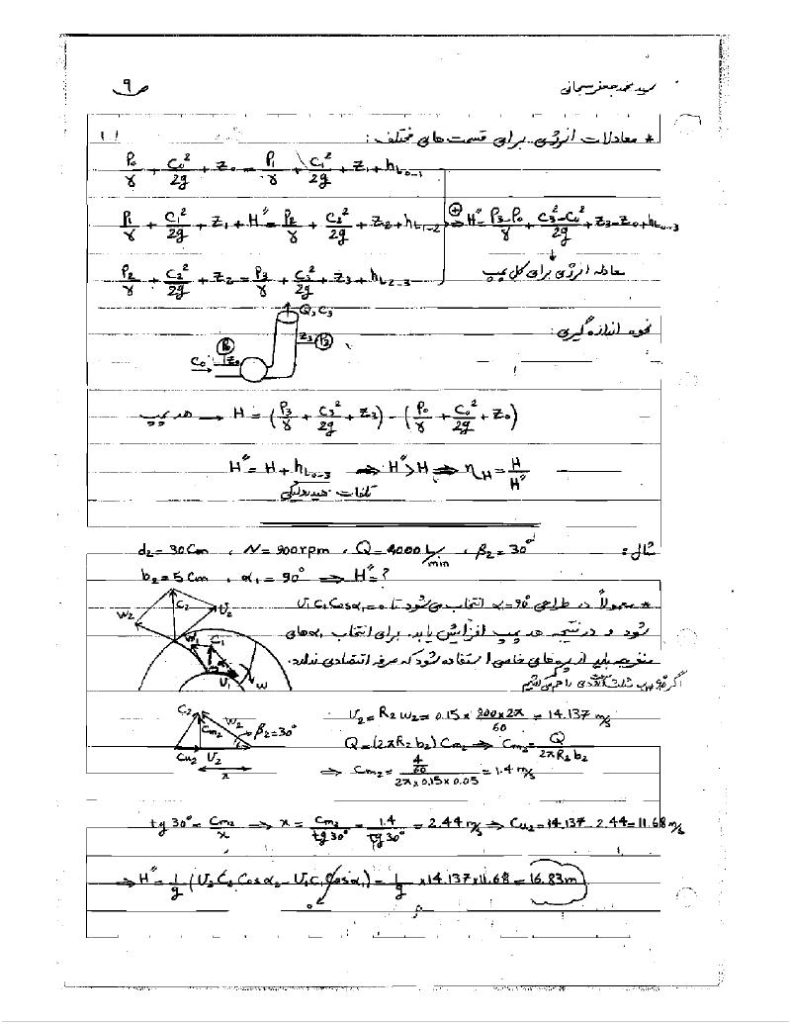 سید محمد جعفر سبحانی
ص 9
* معادلات انرژی برای قسمت های مختلف :
P₀/γ + C₀²/2g + Z₀ = P₁/γ + C₁²/2g + Z₁ + hL₀₋₁
P₁/γ + C₁²/2g + Z₁ + H″ = P₂/γ + C₂²/2g + Z₂ + hL₁₋₂ ⊕⇒ H″ = P₃-P₀/γ + C₃²-C₀²/2g + Z₃-Z₀ + hL₀₋₃
P₂/γ + C₂²/2g + Z₂ = P₃/γ + C₃²/2g + Z₃ + hL₂₋₃
معادله انرژی برای کل پمپ
نحوه اندازه گیری :
Q, C₃
Z₃ P₃
P₀
C₀ Z₀
هد پمپ → H = (P₃/γ + C₃²/2g + Z₃) - (P₀/γ + C₀²/2g + Z₀)
H″ = H + hL₀₋₃ ⇒ H″ > H ⇒ ηH = H/H″
تلفات هیدرولیکی
مثال :
d₂ = 30 cm , N = 900 rpm , Q = 4000 L/min , β₂ = 30°
b₂ = 5 cm , α₁ = 90° ⇒ H″ = ?
* معمولاً در طراحی α₁ = 90° انتخاب می شود تا U₁C₁Cosα₁ = 0
شود و در نتیجه هد پمپ افزایش یابد. برای انتخاب α₁ های
منفرجه باید از پره های خاصی استفاده شود که صرفه اقتصادی ندارد.
W₂ C₂ U₂
W₁ C₁ U₁ W
C₂ Cm₂ W₂ β₂ = 30°
Cu₂ U₂
x
U₂ = R₂ω₂ = 0.15 × 900×2π/60 = 14.137 m/s
Q = (2πR₂b₂) Cm₂ ⇒ Cm₂ = Q/2πR₂b₂
⇒ Cm₂ = (4/60)/(2π×0.15×0.05) = 1.4 m/s
tg 30° = Cm₂/x ⇒ x = Cm₂/tg 30° = 1.4/tg 30° = 2.44 m/s ⇒ Cu₂ = 14.137 - 2.44 = 11.68 m/s
⇒ H″ = 1/g (U₂C₂Cosα₂ - U₁C₁Cosα₁) = 1/g × 14.137 × 11.68 = 16.83 m
0